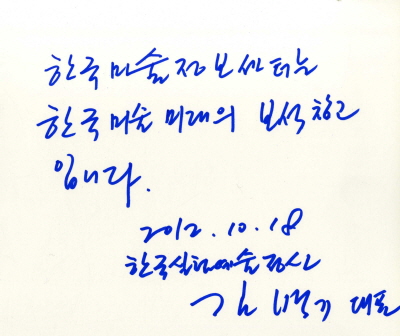 한국미술정보센터는
한국미술 미래의 보석창고
입니다.
2012.10.18
한국실험예술정신
김백기 대표